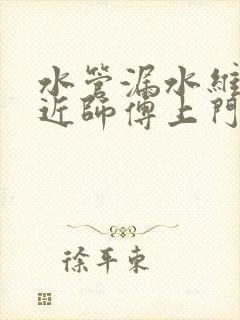 水管漏水維
近師傅上門
徐平東